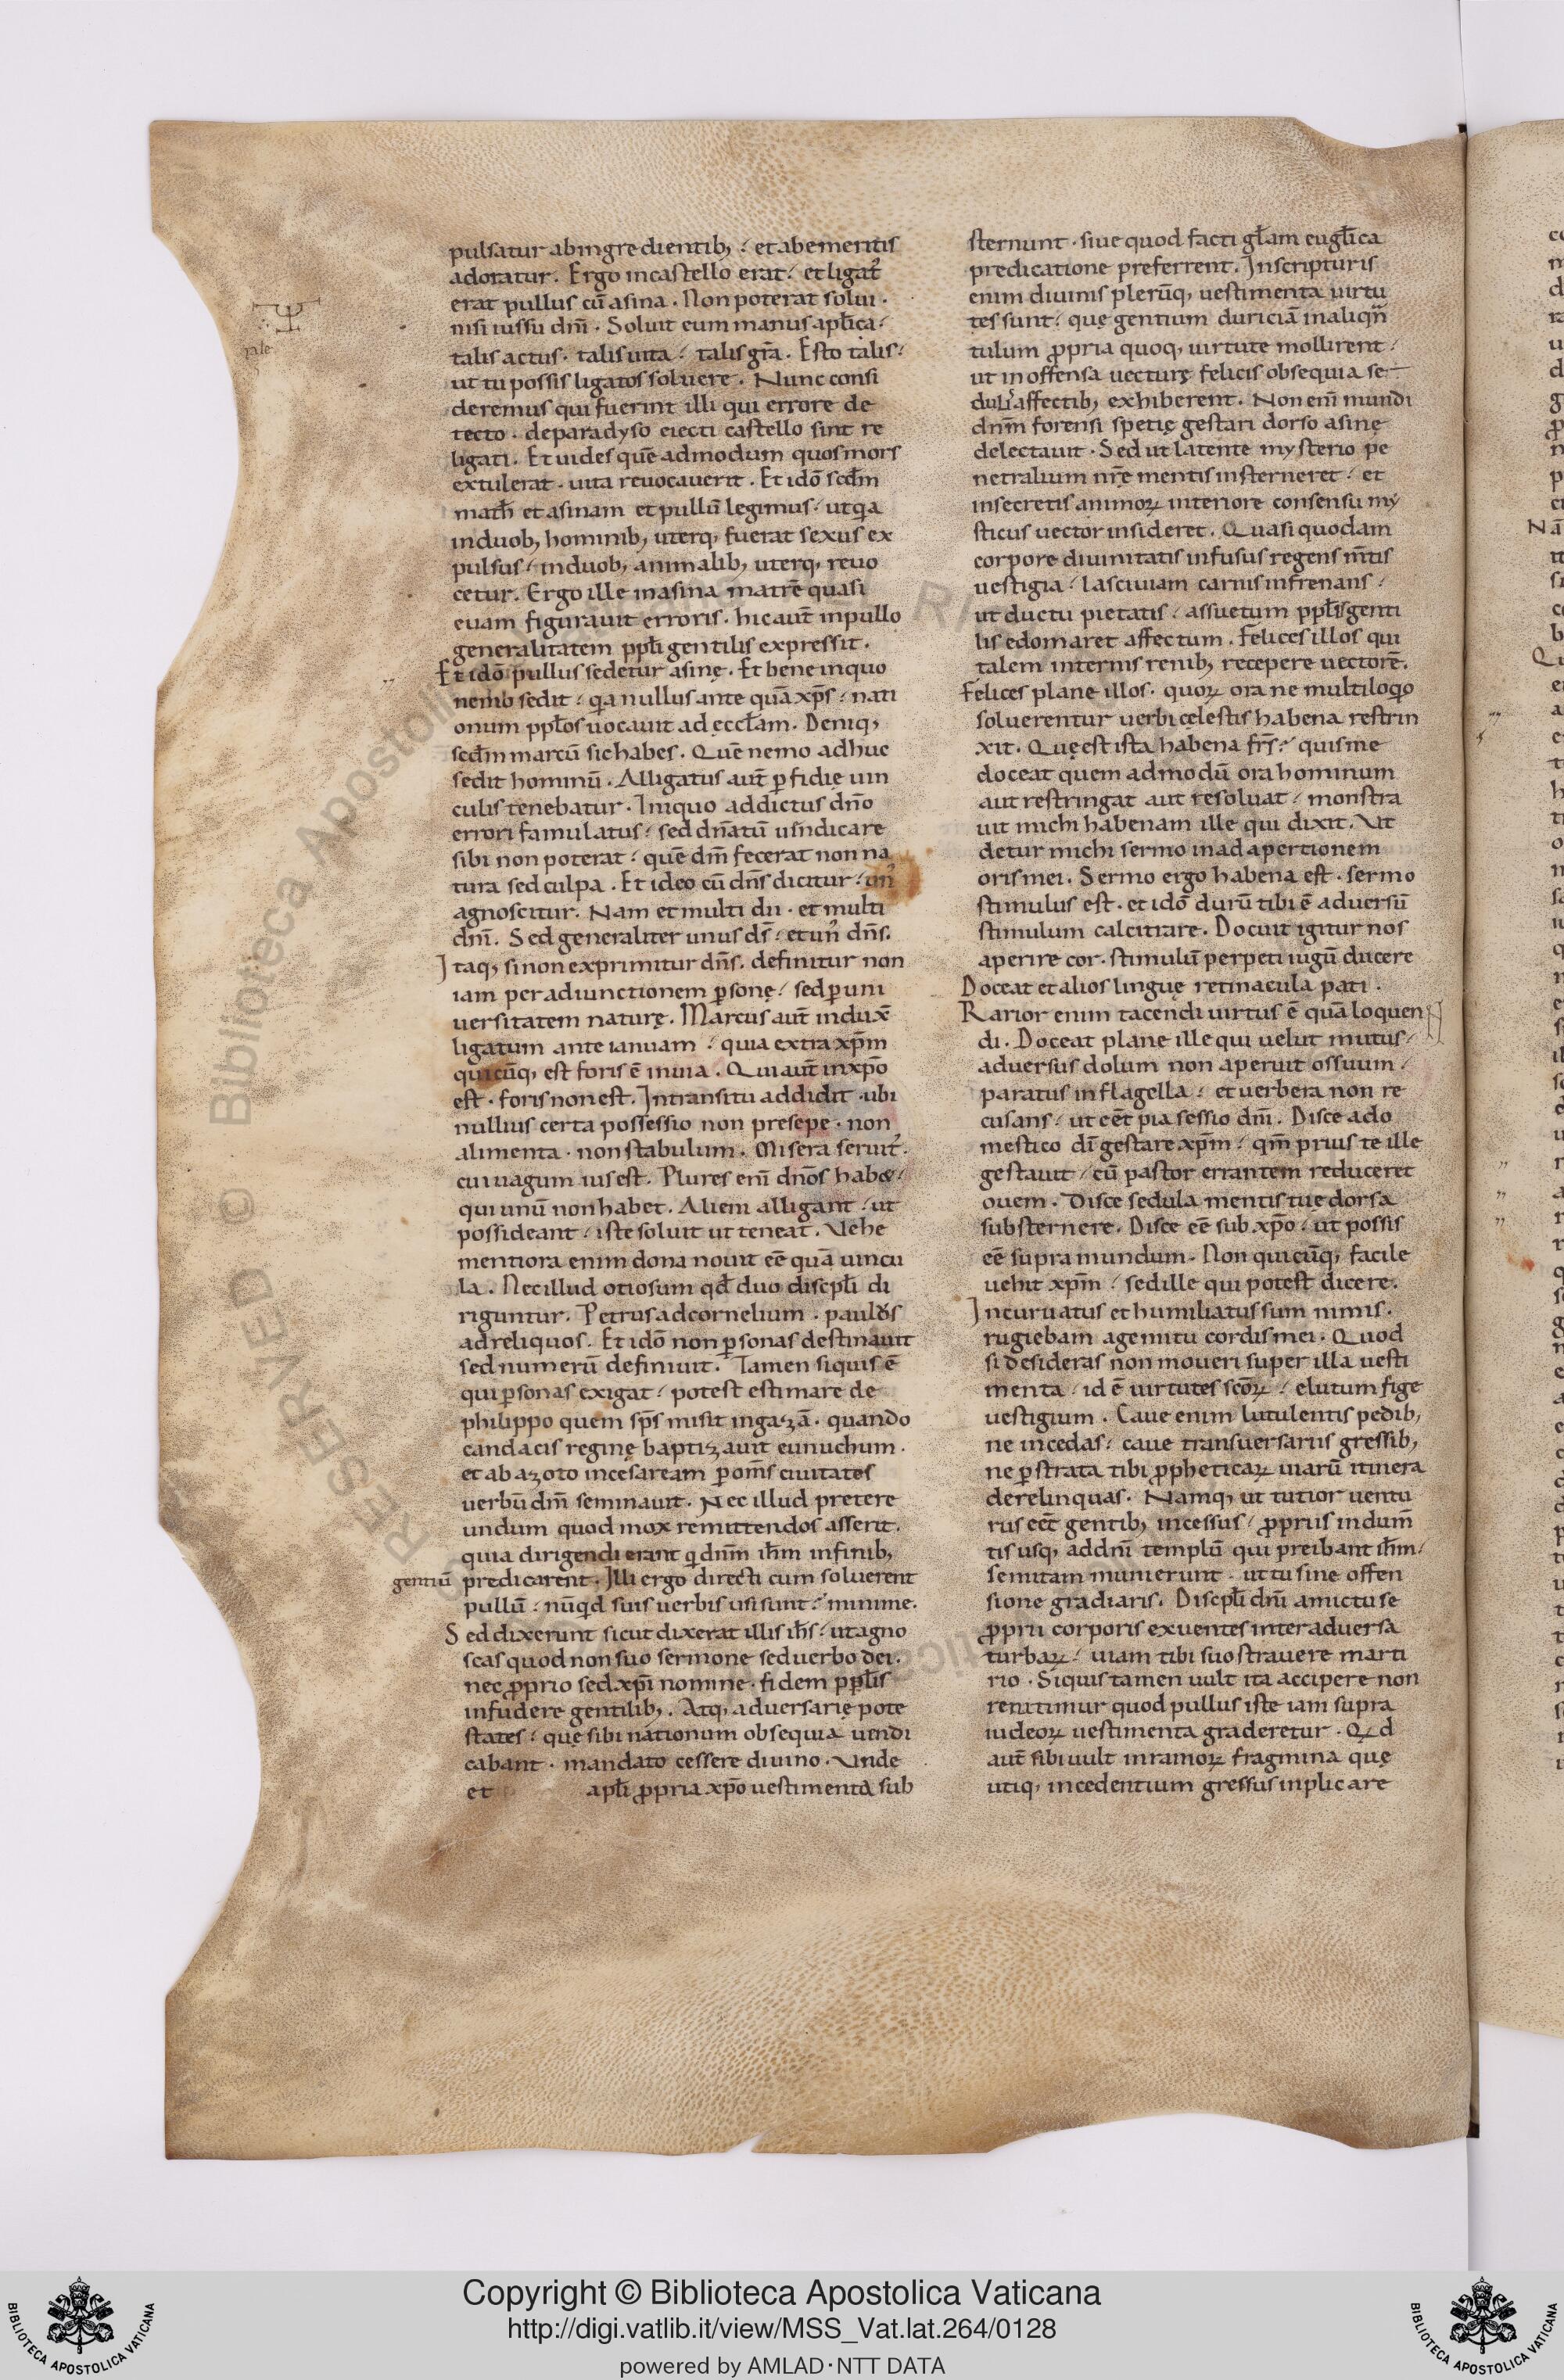 pulsatur ab ingredientib; ⁏ et ab emeritis
adoratur. Ergo in castello erat ⁏ et ligat᷒
erat pullus cū asina. Non poterat solui.
nisi iussu dn̄i. Soluit eum manus apl̄ica ⁏
talis actus. talis uita ⁏ talis gr̄a. Esto talis ⁏
ut tu possis ligatos soluere. Nunc consi
deremus qui fuerint illi qui errore de
tecto. de paradyso eiecti castello sint re
ligati. Et uides quē admodum quos mors
extulerat. uita reuocauerit. Et idō scd̄m
math̄ et asinam et pullū legimus ⁏ ut qa
in duob; hominib; uterq; fuerat sexus ex
pulsus ⁏ in duob; animalib; uterq; reuo
cetur. Ergo ille in asina matrē quasi
euam figurauit erroris. hic aut̄ in pullo
generalitatem ppl̄i gentilis expressit.
Et idō pullus sedetur asinę. Et bene in quo
nemo sedit ⁏ qa nullus ante quā xp̄s ⁏ nati
onum ppl̄os uocauit ad eccl̄am. Deniq;
scd̄m marcū sic habes. Quē nemo adhuc
sedit hominū. Alligatus aut̄ ꝑfidię uin
culis tenebatur. Iniquo addictus dn̄o
errori famulatus ⁏ sed dn̄atū uindicare
sibi non poterat ⁏ quē dn̄m fecerat non na
tura sed culpa. Et ideo cū dn̄s dicitur ⁏ un᷒
agnoscitur. Nam et multi dii. et multi
dn̄i. Sed generaliter unus ds̄ ⁏ et un᷒ dn̄s.
Itaq; si non exprimitur dn̄s. definitur non
iam per adiunctionem ꝑsonę ⁏ sed ꝑ uni
uersitatem naturę. Marcus aut̄ indux̄
ligatum ante ianuam ⁏ quia extra xp̄m
quicūq; est foris ē in uia. Qui aut̄ in xp̄o
est. foris non est. In transitu addidit. ubi
nullius certa possessio non presepe. non
alimenta. non stabulum. Misera seruit᷒.
cui uagum ius est. Plures eni dn̄os habet ⁏
qui unū non habet. Alieni alligant ⁏ ut
possideant ⁏ iste soluit ut teneat. Vehe
mentiora enim dona nouit eē quā uincu
la. Nec illud otiosum qd̄ duo discpl̄i di
riguntur. Petrus ad cornelium. paulus
ad reliquos. Et idō non ꝑsonas destinauit
sed numerū definiuit. Tamen siquis ē
qui ꝑsonas exigat ⁏ potest estimare de
philippo quem sp̄s misit in gazā. quando
candacis reginę baptizauit eunuchum.
et ab azoto in cesaream ꝑ om̄s ciuitates
uerbū dn̄i seminauit. Nec illud pretere
undum quod mox remittendos asserit.
quia dirigendi erant q dn̄m ih̄m in finib;
gentiū predicarent. Illi ergo directi cum soluerent
pullū ⁏ nūqd suis uerbis usi sunt ⁏ minime.
Sed dixerunt sicut dixerat illis ih̄s ⁏ ut agno
scas quod non suo sermone sed uerbo dei.
nec ꝓprio sed xp̄i nomine. fidem ppl̄is
infudere gentilib;. Atq; aduersarię pote
states ⁏ quę sibi nationum obsequia uindi
cabant. mandato cessere diuino. Vnde
et apl̄i ꝓpria xp̄o uestimenta sub
sternunt. siue quod facti gl̄am eugl̄ica
predicatione preferrent. In scripturis
enim diuinis plerūq; uestimenta uirtu
tes sunt ⁏ quę gentium duriciā in aliqn̄
tulum ꝓpria quoq; uirtute mollirent ⁏
ut inoffensa uecturę felicis obsequia se
duli affectib; exhiberent. Non eni mundi
dnm̄ forensi spetię gestari dorso asinę
delectauit. Sed ut latente mysterio pe
netralium nr̄ę mentis insterneret ⁏ et
in secretis animoꝝ interiore consensu my
sticus uector insideret. Quasi quodam
corpore diuinitatis infusus regens m̄tis
uestigia ⁏ lasciuiam carnis infrenans ⁏
ut ductu pietatis ⁏ assuetum ppl̄is genti
lis edomaret affectum. Felices illos qui
talem internis renib; recepere uectorē.
Felices plane illos. quoꝝ ora ne multiloqo
soluerentur uerbi celestis habena restrin
xit. Quę est ista habena frs̄ ⁏ quis me
doceat quem admodū ora hominum
aut restringat aut resoluat ⁏ monstra
uit michi habenam ille qui dixit. Vt
detur michi sermo in ad apertionem
oris mei. Sermo ergo habena est. sermo
stimulus est. et idō durū tibi ē aduersū
stimulum calcitrare. Docuit igitur nos
aperire cor. stimulū perpeti iugū ducere
Doceat et alios linguę retinacula pati.
Rarior enim tacendi uirtus ē quā loquen
di. Doceat plane ille qui uelut mutus ⁏
aduersus dolum non aperuit os suum ⁏
paratus in flagella ⁏ et uerbera non re
cusans ⁏ ut eēt pia sessio dn̄i. Disce a do
mestico di gestare xp̄m ⁏ qm̄ prius te ille
gestauit ⁏ cū pastor errantem reduceret
ouem. Disce sedula mentis tuę dorsa
substernere. Disce eē sub xp̄o ⁏ ut possis
eē supra mundum. Non quicūq; facile
uehit xp̄m ⁏ sed ille qui potest dicere.
Incuruatus et humiliatus sum nimis.
rugiebam a gemitu cordis mei. Quod
si desideras non moueri super illa uesti
menta ⁏ id ē uirtutes scōꝝ ⁏ elutum fige
uestigium. Caue enim lutulentis pedib;
ne incedas ⁏ caue transuersariis gressib;
ne ꝑstrata tibi ꝓpheticaꝝ uiarū itinera
derelinquas. Namq; ut tutior uentu
rus eēt gentib; incessus ⁏ ꝓpriis indum̄
tis usq; ad dn̄i templū qui preibant ih̄m ⁏
semitam munierunt. ut tu sine offen
sione gradiaris. Discpl̄i dn̄i amictu se
ꝓprii corporis exuentes inter aduersa
turbaꝝ ⁏ uiam tibi suo strauere marti
rio. Siquis tamen uult ita accipere non
renitimur quod pullus iste iam supra
iudeoꝝ uestimenta graderetur. Qd
aut̄ sibi uult in ramoꝝ fragmina quę
utiq; incedentium gressus inplicare
Copyright © Biblioteca Apostolica Vaticana
http://digi.vatlib.it/view/MSS_Vat.lat.264/0128
powered by AMLAD·NTT DATA